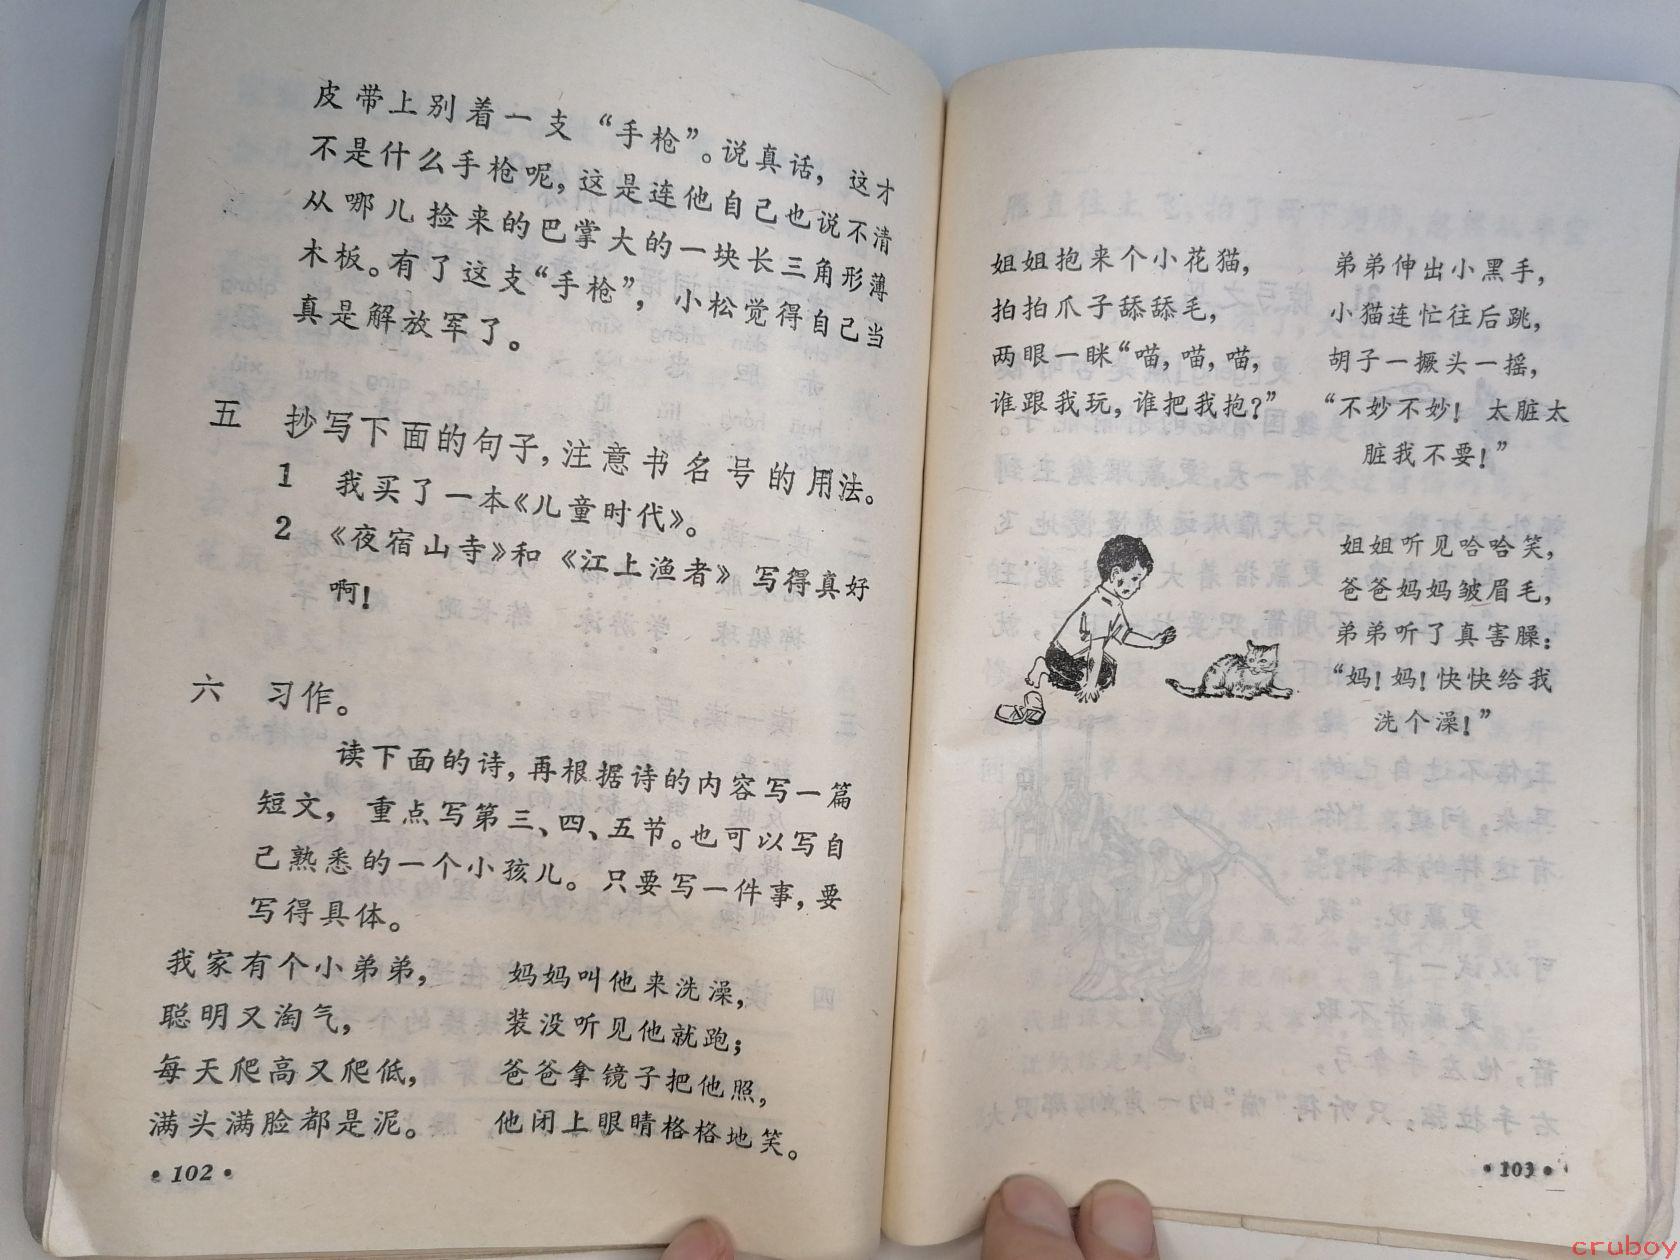 皮带上别着一支“手枪”。说真话，这才
不是什么手枪呢，这是连他自己也说不清
从哪儿捡来的巴掌大的一块长三角形薄
木板。有了这支“手枪”，小松觉得自己当
真是解放军了。
五 抄写下面的句子，注意书名号的用法。
1 我买了一本《儿童时代》。
2 《夜宿山寺》和《江上渔者》写得真好
啊！
六 习作。
读下面的诗，再根据诗的内容写一篇
短文，重点写第三、四、五节。也可以写自
己熟悉的一个小孩儿。只要写一件事，要
写得具体。
我家有个小弟弟，
聪明又淘气，
每天爬高又爬低，
满头满脸都是泥。
妈妈叫他来洗澡，
装没听见他就跑；
爸爸拿镜子把他照，
他闭上眼睛格格地笑。
·102·
姐姐抱来个小花猫，
拍拍爪子舔舔毛，
两眼一眯“喵，喵，喵，
谁跟我玩，谁把我抱？”
弟弟伸出小黑手，
小猫连忙往后跳，
胡子一撅头一摇，
“不妙不妙！太脏太
脏我不要！”
姐姐听见哈哈笑，
爸爸妈妈皱眉毛，
弟弟听了真害臊：
“妈！妈！快快给我
洗个澡！”
·103·
cruboy